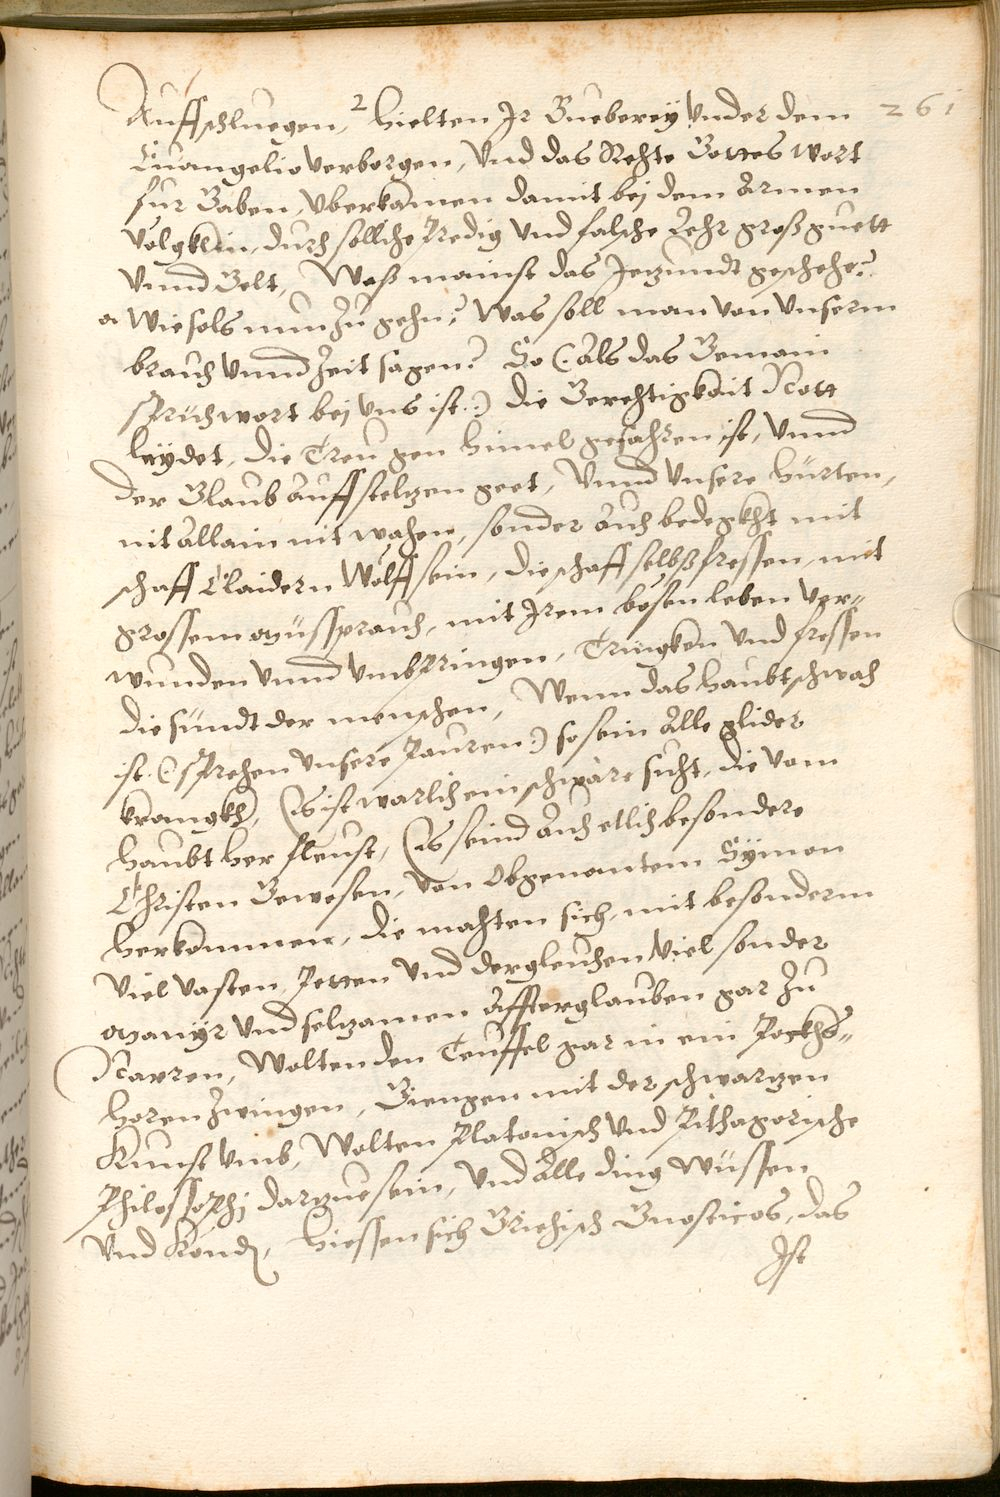 261
Auffschluegen, 2 hielten Ir Bueberey vnder dem
Euangelio verborgen, vnd das Rechte Gottes wort
fur Gaben, vberkamen damit bej dem Armen
volgklin, durch solliche Predig vnd falsche Lehr groß guett
vnnd Gelt, Waß mainst das Jetzundt geschehe?
wie sols nun zu gehn? Was soll man von vnserm
brauch vnnd Zeit sagen? So (: Als das Gemain
sprichwort bej vns ist :) die Gerechtigkait Nott
leydet, die Treu gen himel gefahren ist, vnnd
der Glaub auff steltzen geet, vnnd vnsere hürten,
nit allain nit wachen, sonder auch bedegkht mit
schaff Claidern Wolff sein, die schaff selbß fressen, mit
grossem müssprauch, mit Irem bösen leben ver=
wunden vnnd vmbpringen, Tringken vnd fressen
die sündt der menschen, Wenn das haubt schwach
ist. (: sprechen vnsere Pauren :) so sein Alle glider
krangkh, Es ist warlich ein schwäre sucht, die vom
haubt her fleust, Es seind auch etlich besondere
Christen Gewesen, von obgenantem Symon
herkommen, die machten sich, mit besonderm
viel vasten, Petten vnd dergleichen viel sonder
manyr vnd seltzamen Affterglauben gar zu
Narren, Wolten den Teuffel gar in ein Pockhs=
horen zwingen, Giengen mit der schwartzen
Kunst vmb, Wolten Platonisch vnd Pithagorische
Philossophj dartzue sein, vnd Alle ding wüssen
vnd Kondn, hiessen sich Griechisch Gnosticos, das
Ist